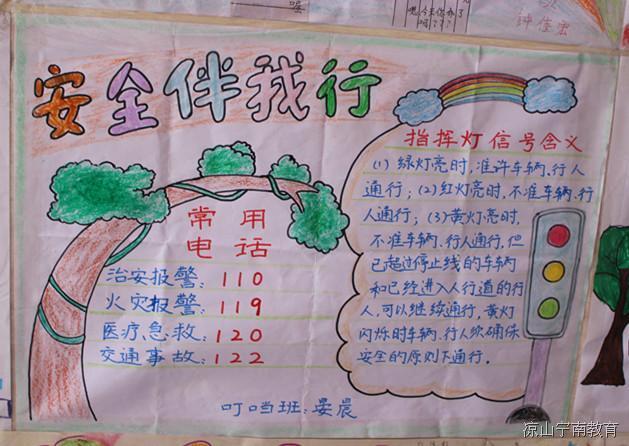 钟佳宏
安全伴我行
常用
电话
治安报警：110
火灾报警：119
医疗急救：120
交通事故：122
叮当班：晏晨
指挥灯信号含义
(1)绿灯亮时，准许车辆、行人
通行；(2)红灯亮时，不准车辆、行
人通行；(3)黄灯亮时，
不准车辆、行人通行，但
已超过停止线的车辆
和已经进入人行道的行
人，可以继续通行，黄灯
闪烁时车辆、行人须确保
安全的原则下通行。
凉山宁南教育